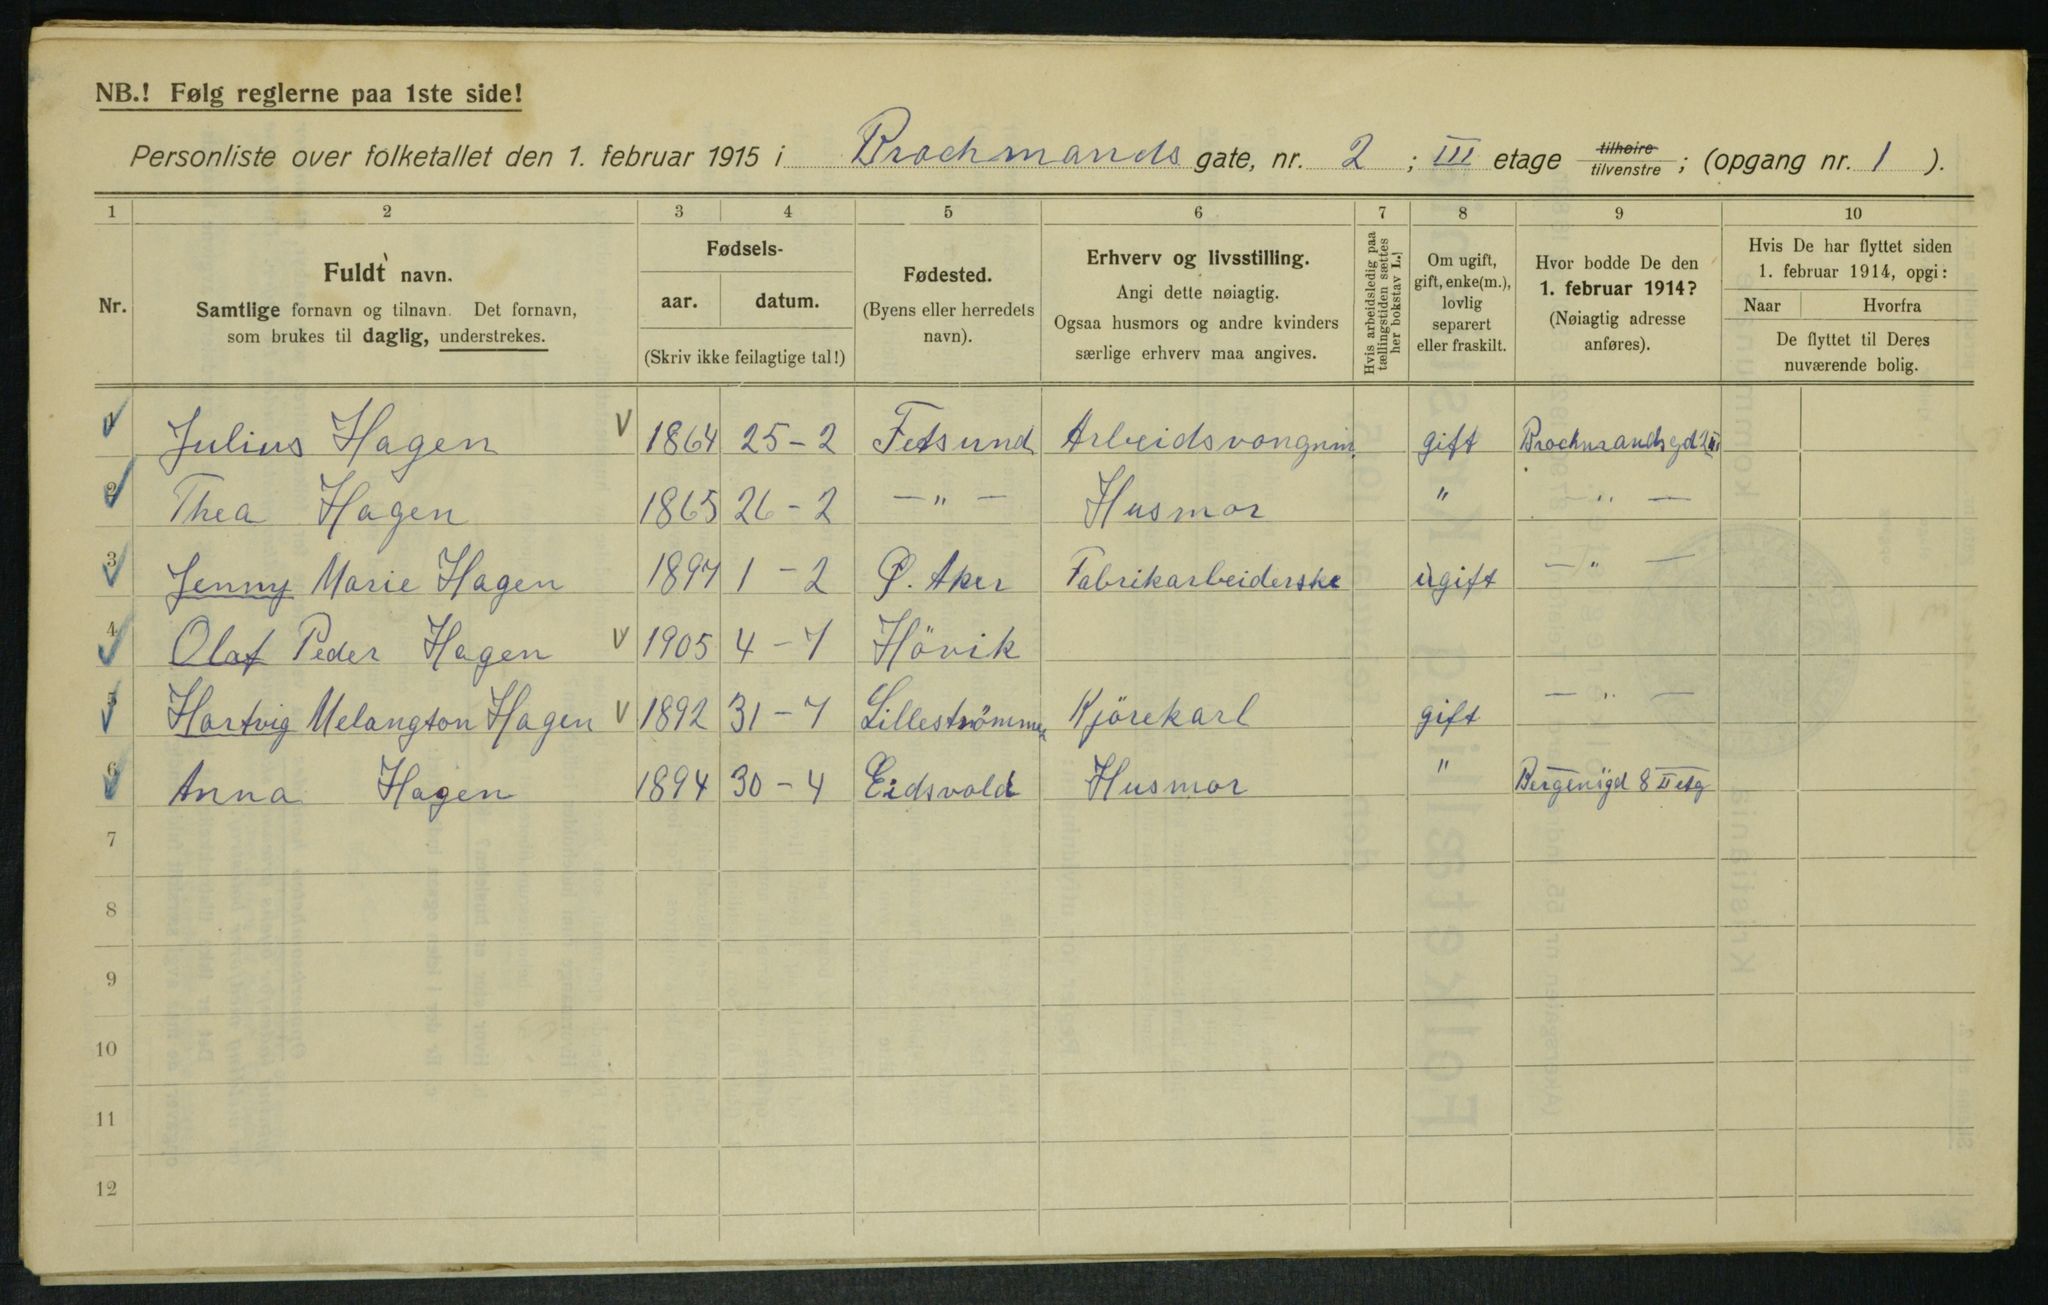 NB.! Følg reglerne paa 1ste side!
Personliste over folketallet den 1. februar 1915 i Brochmands gate, nr. 2 ; III etage tilhøire / tilvenstre ; (opgang nr. 1 ).
1 2 3 4 5 6 7 8 9 10
Nr.
Fuldt navn.
Samtlige fornavn og tilnavn. Det fornavn,
som brukes til daglig, understrekes.
Fødsels-
aar. datum.
(Skriv ikke feilagtige tal!)
Fødested.
(Byens eller herredets
navn).
Erhverv og livsstilling.
Angi dette nøiagtig.
Ogsaa husmors og andre kvinders
særlige erhverv maa angives.
Hvis arbeidsledig paa
tællingstiden sættes
her bokstav L.)
Om ugift,
gift, enke(m.),
lovlig
separert
eller fraskilt.
Hvor bodde De den
1. februar 1914?
(Nøiagtig adresse
anføres).
Hvis De har flyttet siden
1. februar 1914, opgi:
Naar Hvorfra
De flyttet til Deres
nuværende bolig.
1 Julius Hagen V 1864 25-2 Fetsund gift
2 Thea Hagen 1865 26-2 — " — Husmor " — " —
3 Jenny Marie Hagen 1897 1-2 Ø. Aker Fabrikarbeiderske ugift — " —
4 Olaf Peder Hagen V 1905 4-7 Hövik
5 Hartvig Melangton Hagen V 1892 31-7 Lilleströmmen Kjörekarl gift — " —
6 Anna Hagen 1894 30-4 Eidsvold Husmor " 8 II etg
7
8
9
10
11
12